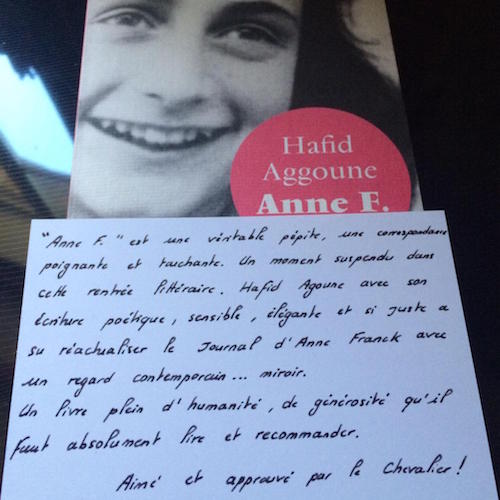 Hafid
Aggoune
Anne F.
"Anne F." est une véritable pépite, une correspondance
poignante et touchante. Un moment suspendu dans
cette rentrée littéraire. Hafid Agoune avec son
écriture poétique, sensible, élégante et si juste a
su réactualiser le Journal d'Anne Franck avec
un regard contemporain... miroir.
Un livre plein d'humanité, de générosité qu'il
faut absolument lire et recommander.
Aimé et approuvé par le Chevalier!